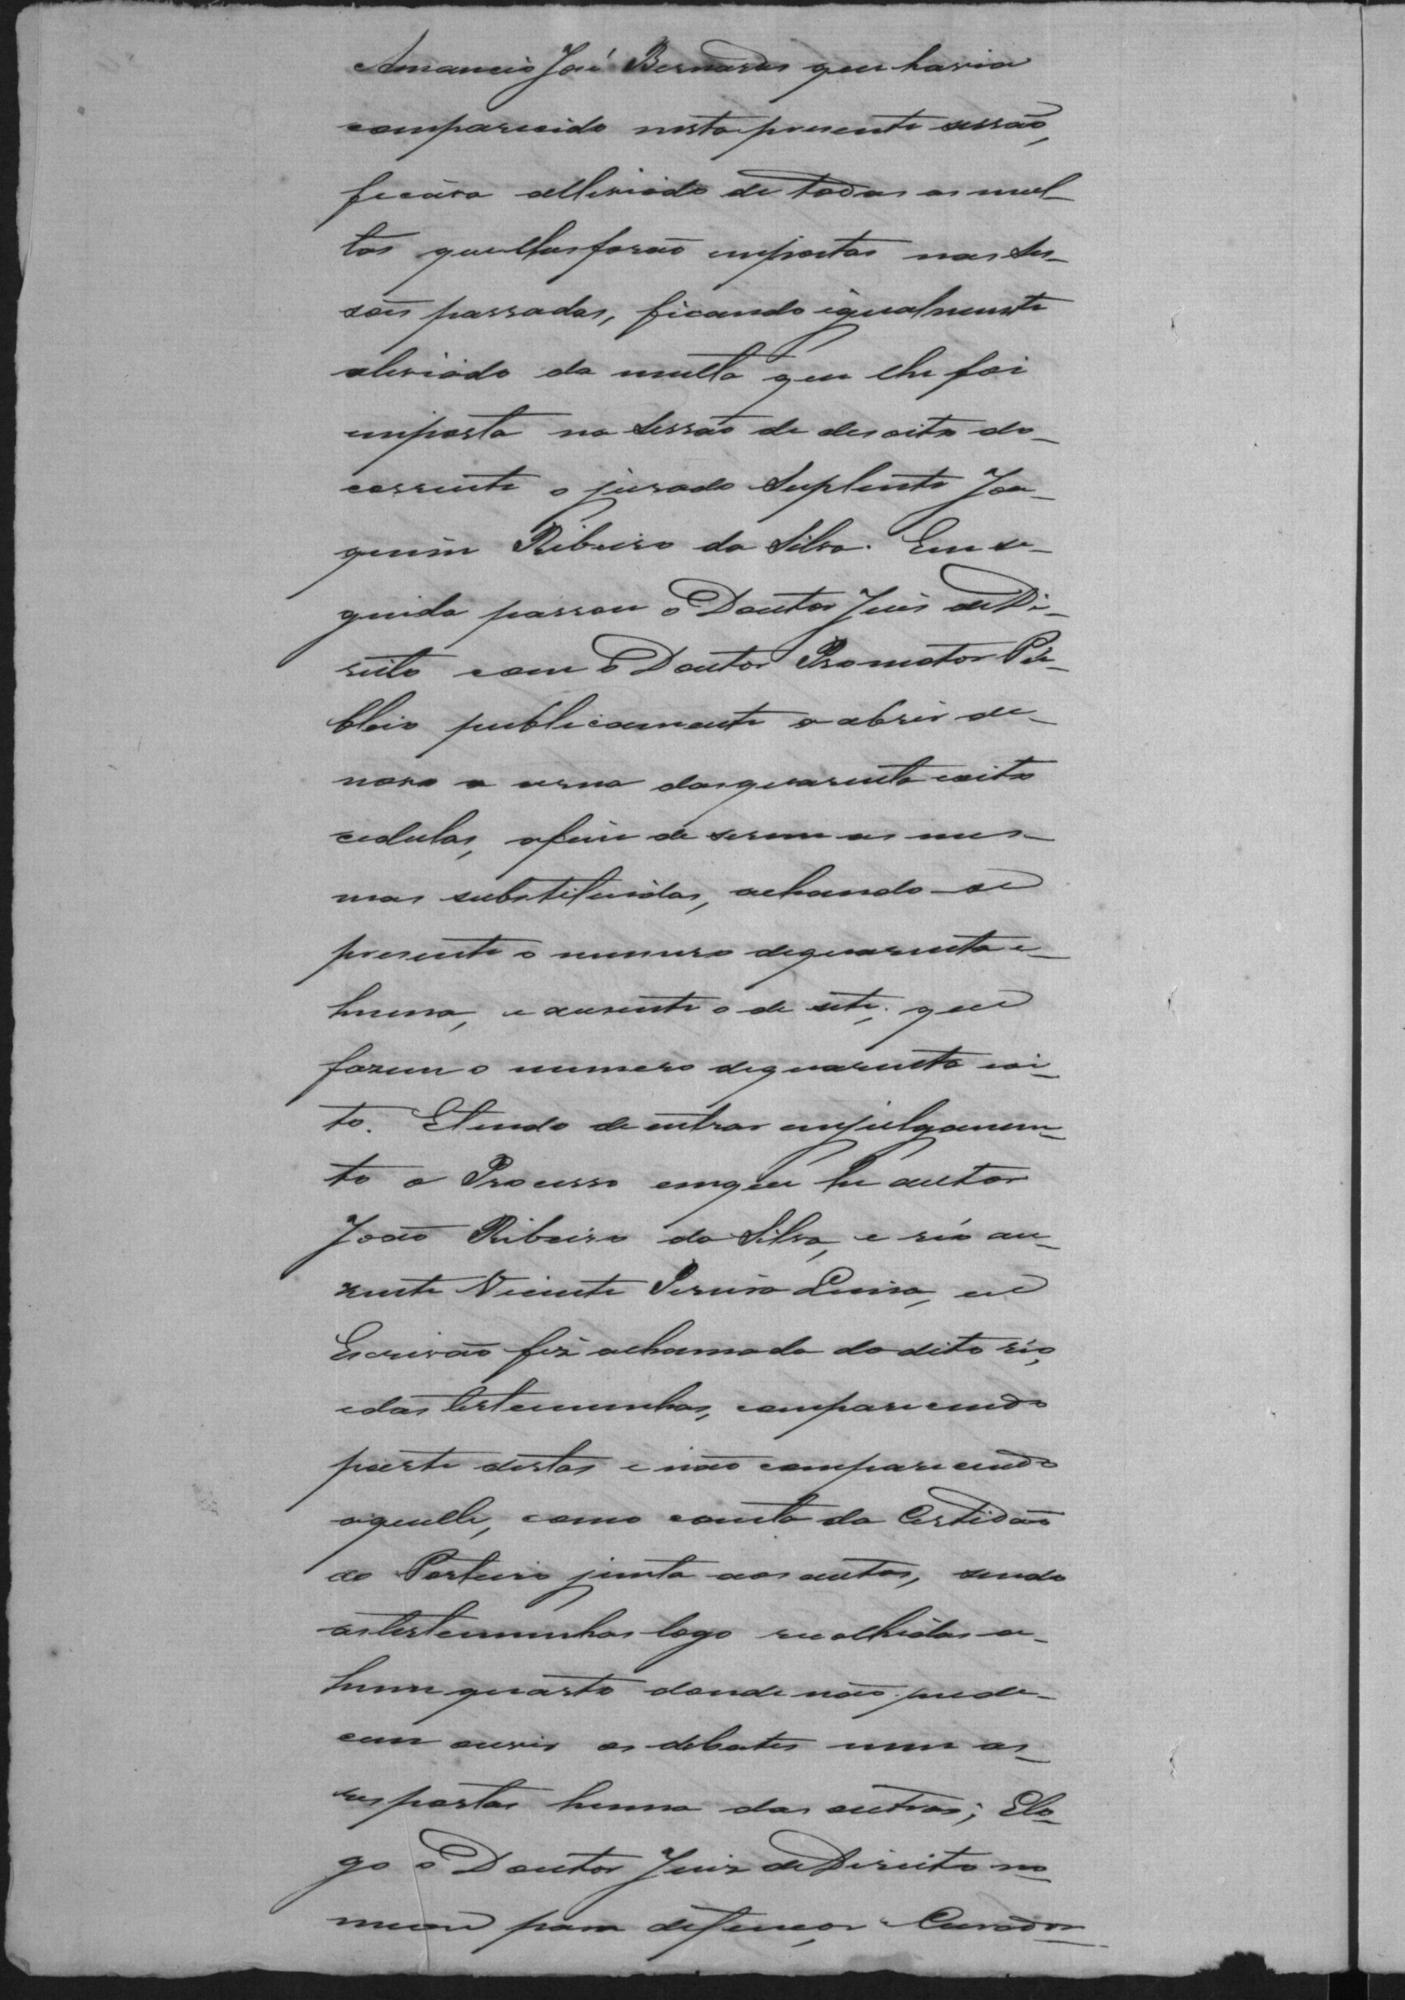 Amancio José Bernardes que havia
comparecido nesta presente sessão,
ficára alleviado de todas as mul-
tas que lhes forão impostas nas ses-
sões passadas, ficando igualmente
aleviado da multa que lhe foi
imposta na Sessão de desoito do
corrente o jurado Suplente Joa-
quim Ribeiro da Silva. Em se-
guida passou o Doutor Juis de Di-
reito com o Doutor Promotor Pu-
blico publicamente a abrir de
novo a urna das quarenta e oito
cedulas, afim de serem as mes-
mas substituidas, achando-se
presente o numero de quarenta e
huma, e ausente o de sete, que
fazem o numero de quarenta e oi-
to. E tendo de entrar em julgamen-
to o Processo em que he autor
João Ribeiro da Silva, e réo au-
zente Vicente Pereira Lima, eu
Escrivão fiz a chamada do dito réo,
e das testemunhas, comparecendo
parte destas e não comparecendo
aquelle, como consta da Certidão
do Porteiro junta aos autos, sendo
as testemunhas logo recolhidas a
hum quarto donde não podes-
cem ouvir os debates nem as
respostas huma das outras; E lo-
go o Doutor Juiz de Direito no-
meou para defençor e Curador